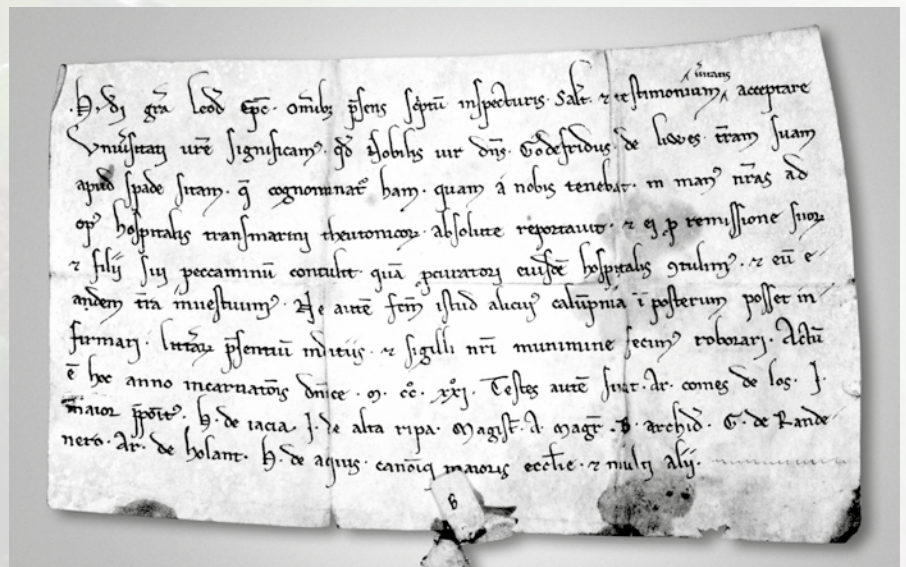 .H. di gr̄a leod̄ ep̄c. om̄ibꝫ p̄sens sc̓ptū inspecturis. Salt̄. ⁊ testimonium acceptare
vniu̓sitati ur̄e significamꝰ. qd̄ Nobilis uir dn̄s. Godefridus de lewes. tr̄am suam
apud spade sitam. q̄ cognominat᷑ ham. quam a nobis tenebat. in manꝰ nr̄as ad
opꝰ hospitalis transmarini theutonicoꝝ absolute reportauit. ⁊ ei ꝑ remissione suoꝝ
⁊ filii sui peccaminū contulit. quā ꝓcuratori eiusdē hospitalis ꝯtulimꝰ. ⁊ eū e
andem tr̄a inuestiuimꝰ. Ne autē fc̄m istud alicuiꝰ calūpnia ī posterum posset in
firmari. litt̓aꝝ p̄sentiū indiciis. ⁊ sigilli nr̄i munimine fecimꝰ roborari. Actū
ē hoc anno incarnatōis dn̄ice. m. c̊c. xx̊i. Testes autē sunt. Ar. comes de los. J.
maior p̄poitꝰ. H. de iacia. J. de alta ripa. Magist̄. A. magr̄. B. archid̄. G. de Rande
nero. Ar. de holant. H. de aquis. canōici maioris eccl̄ie. ⁊ multi alii.
B